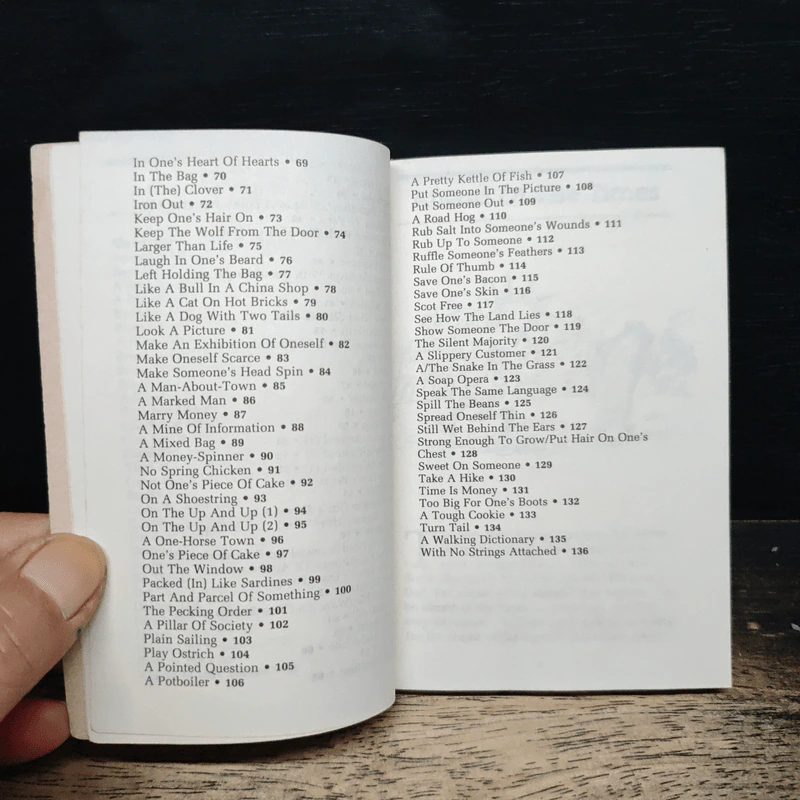 In One's Heart Of Hearts • 69
In The Bag • 70
In (The) Clover • 71
Iron Out • 72
Keep One's Hair On • 73
Keep The Wolf From The Door • 74
Larger Than Life • 75
Laugh In One's Beard • 76
Left Holding The Bag • 77
Like A Bull In A China Shop • 78
Like A Cat On Hot Bricks • 79
Like A Dog With Two Tails • 80
Look A Picture • 81
Make An Exhibition Of Oneself • 82
Make Oneself Scarce • 83
Make Someone's Head Spin • 84
A Man-About-Town • 85
A Marked Man • 86
Marry Money • 87
A Mine Of Information • 88
A Mixed Bag • 89
A Money-Spinner • 90
No Spring Chicken • 91
Not One's Piece Of Cake • 92
On A Shoestring • 93
On The Up And Up (1) • 94
On The Up And Up (2) • 95
A One-Horse Town • 96
One's Piece Of Cake • 97
Out The Window • 98
Packed (In) Like Sardines • 99
Part And Parcel Of Something • 100
The Pecking Order • 101
A Pillar Of Society • 102
Plain Sailing • 103
Play Ostrich • 104
A Pointed Question • 105
A Potboiler • 106
A Pretty Kettle Of Fish • 107
Put Someone In The Picture • 108
Put Someone Out • 109
A Road Hog • 110
Rub Salt Into Someone's Wounds • 111
Rub Up To Someone • 112
Ruffle Someone's Feathers • 113
Rule Of Thumb • 114
Save One's Bacon • 115
Save One's Skin • 116
Scot Free • 117
See How The Land Lies • 118
Show Someone The Door • 119
The Silent Majority • 120
A Slippery Customer • 121
A/The Snake In The Grass • 122
A Soap Opera • 123
Speak The Same Language • 124
Spill The Beans • 125
Spread Oneself Thin • 126
Still Wet Behind The Ears • 127
Strong Enough To Grow/Put Hair On One's
Chest • 128
Sweet On Someone • 129
Take A Hike • 130
Time Is Money • 131
Too Big For One's Boots • 132
A Tough Cookie • 133
Turn Tail • 134
A Walking Dictionary • 135
With No Strings Attached • 136